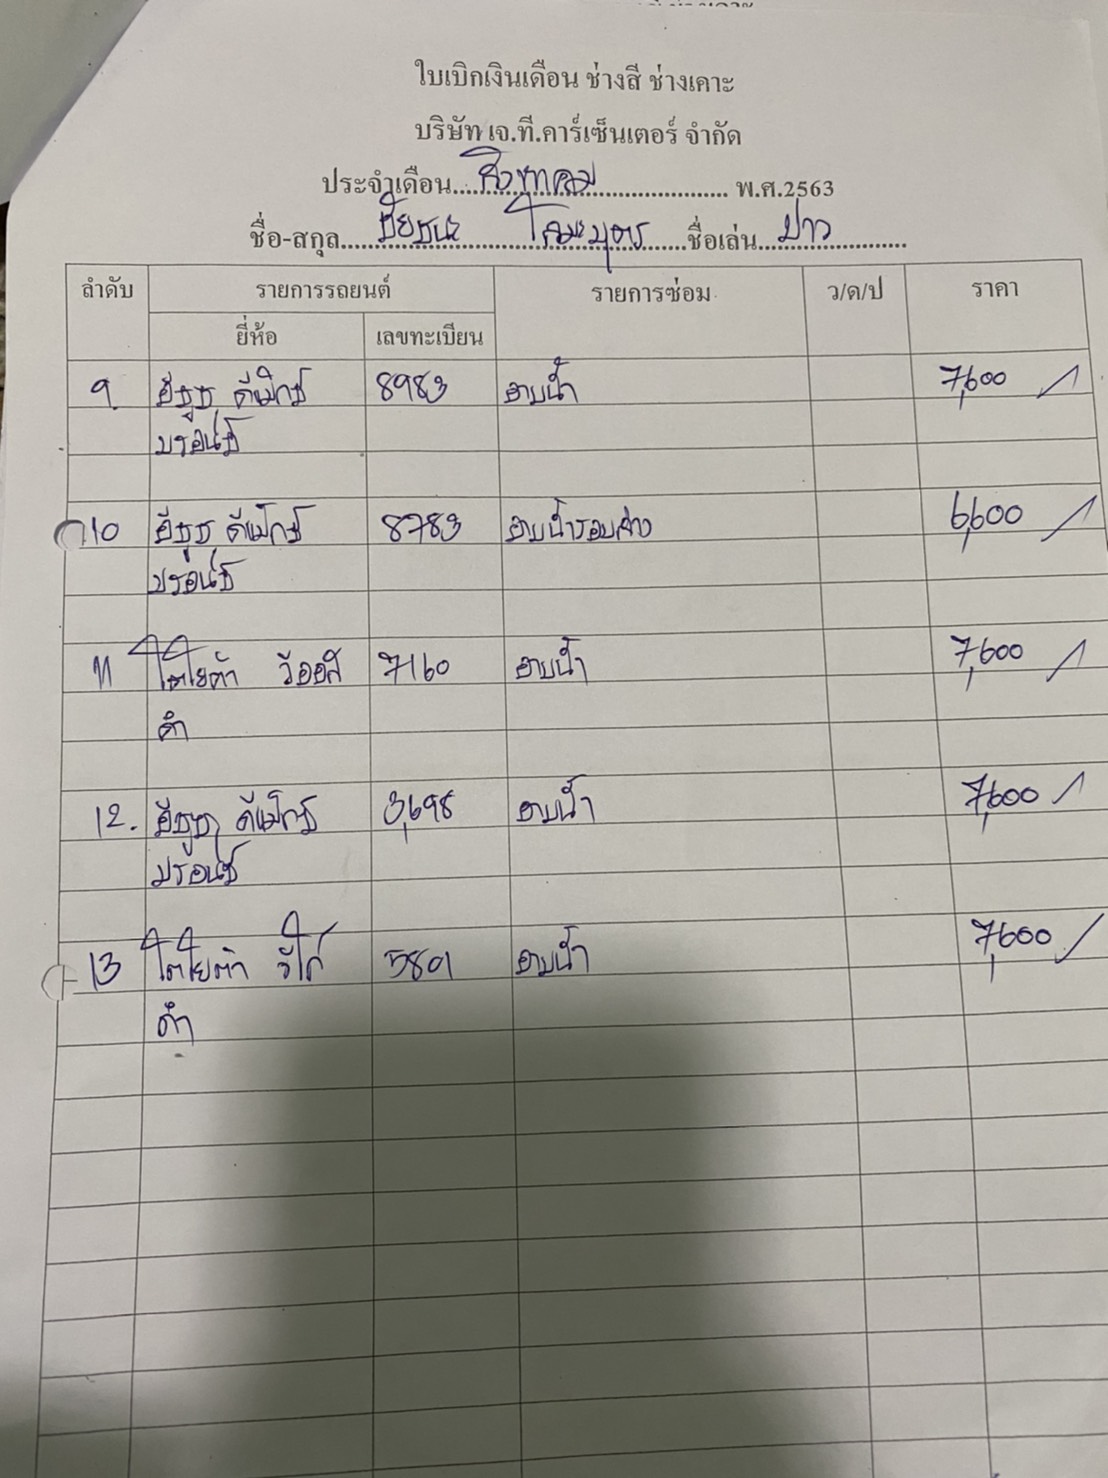 ใบเบิกเงินเดือน ช่างสี ช่างเคาะ
บริษัท เจ.ที.คาร์เซ็นเตอร์ จำกัด
ประจำเดือน....สิงหาคม.... พ.ศ.2563
ชื่อ-สกุล....ชัยชนะ....ชื่อเล่น....ปาว....
ลำดับ รายการรถยนต์ รายการซ่อม ว/ด/ป ราคา
ยี่ห้อ เลขทะเบียน
9. อีซูซุ ดีแม็กซ์ 8983 อาบน้ำ 7,600
บรอนซ์
10 อีซูซุ ดีแม็กซ์ 8783 อาบน้ำรอบล่าง 6,600
บรอนซ์
11 โตโยต้า วีออส 7160 อาบน้ำ 7,600
ดำ
12. อีซูซุ ดีแม็กซ์ 3698 อาบน้ำ 7,600
บรอนซ์
13 โตโยต้า วีโก่ 5801 อาบน้ำ 7,600
ดำ